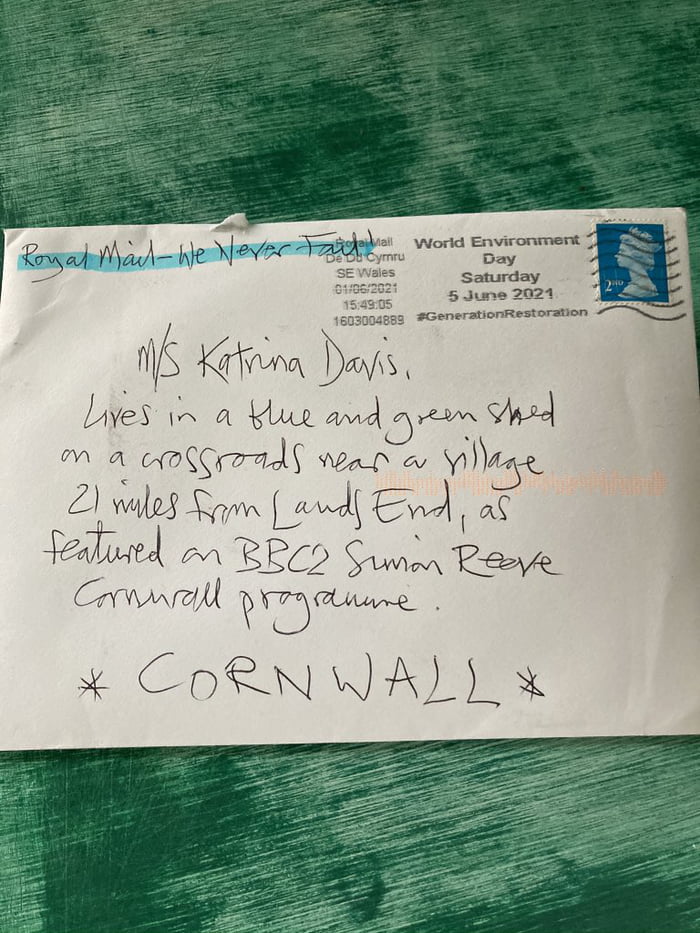 Royal Mail - We Never Fail!
Royal Mail
De Du Cymru
SE Wales
01/06/2021
15:49:05
1603004889
World Environment
Day
Saturday
5 June 2021
#GenerationRestoration
2ND
M/S Katrina Davis,
Lives in a blue and green shed
on a crossroads near a village
21 miles from Lands End, as
featured on BBC2 Simon Reeve
Cornwall programme.
* CORNWALL *